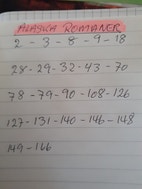 ALASKA ROMANER
2 - 3 - 8 - 9 - 18
28 - 29 - 32 - 43 - 70
78 - 79 - 90 - 108 - 126
127 - 131 - 140 - 146 - 148
149 - 166